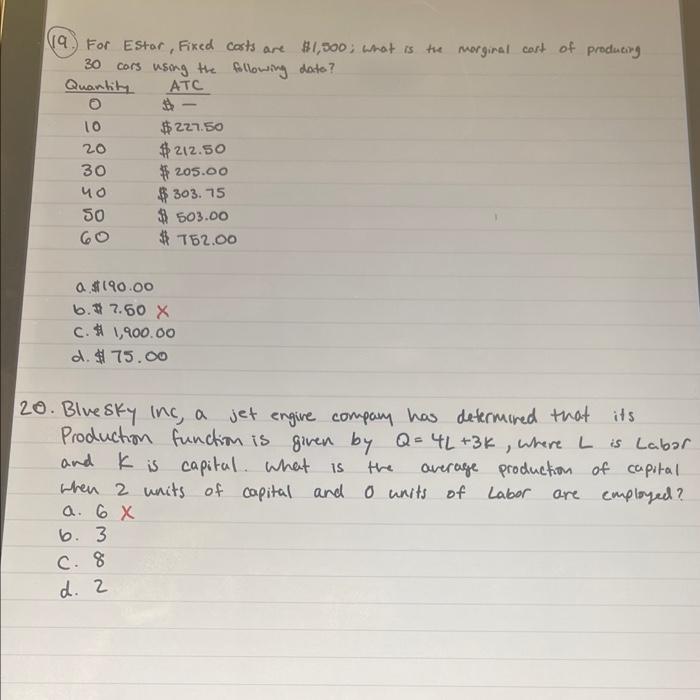 19. For EStar, Fixed costs are $1,500; what is the marginal cost of producing
30 cars using the following data?
Quantity ATC
0 $ —
10 $227.50
20 $212.50
30 $205.00
40 $303.75
50 $503.00
60 $752.00
a. $190.00
b. $7.50 X
c. $1,900.00
d. $75.00
20. Blue Sky Inc, a jet engine company has determined that its
Production function is given by Q = 4L + 3K, where L is Labor
and K is capital. What is the average production of capital
when 2 units of capital and 0 units of Labor are employed?
a. 6 X
b. 3
c. 8
d. 2